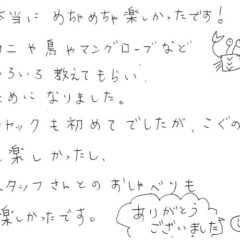 本当に めちゃめちゃ楽しかったです!
カニや鳥やマングローブなど
いろいろ教えてもらい、
ためになりました。
ヤックも初めてでしたが、こぐの
楽しかったし、
スタッフさんとのおしゃべりも
楽しかったです。
ありがとう
ございました